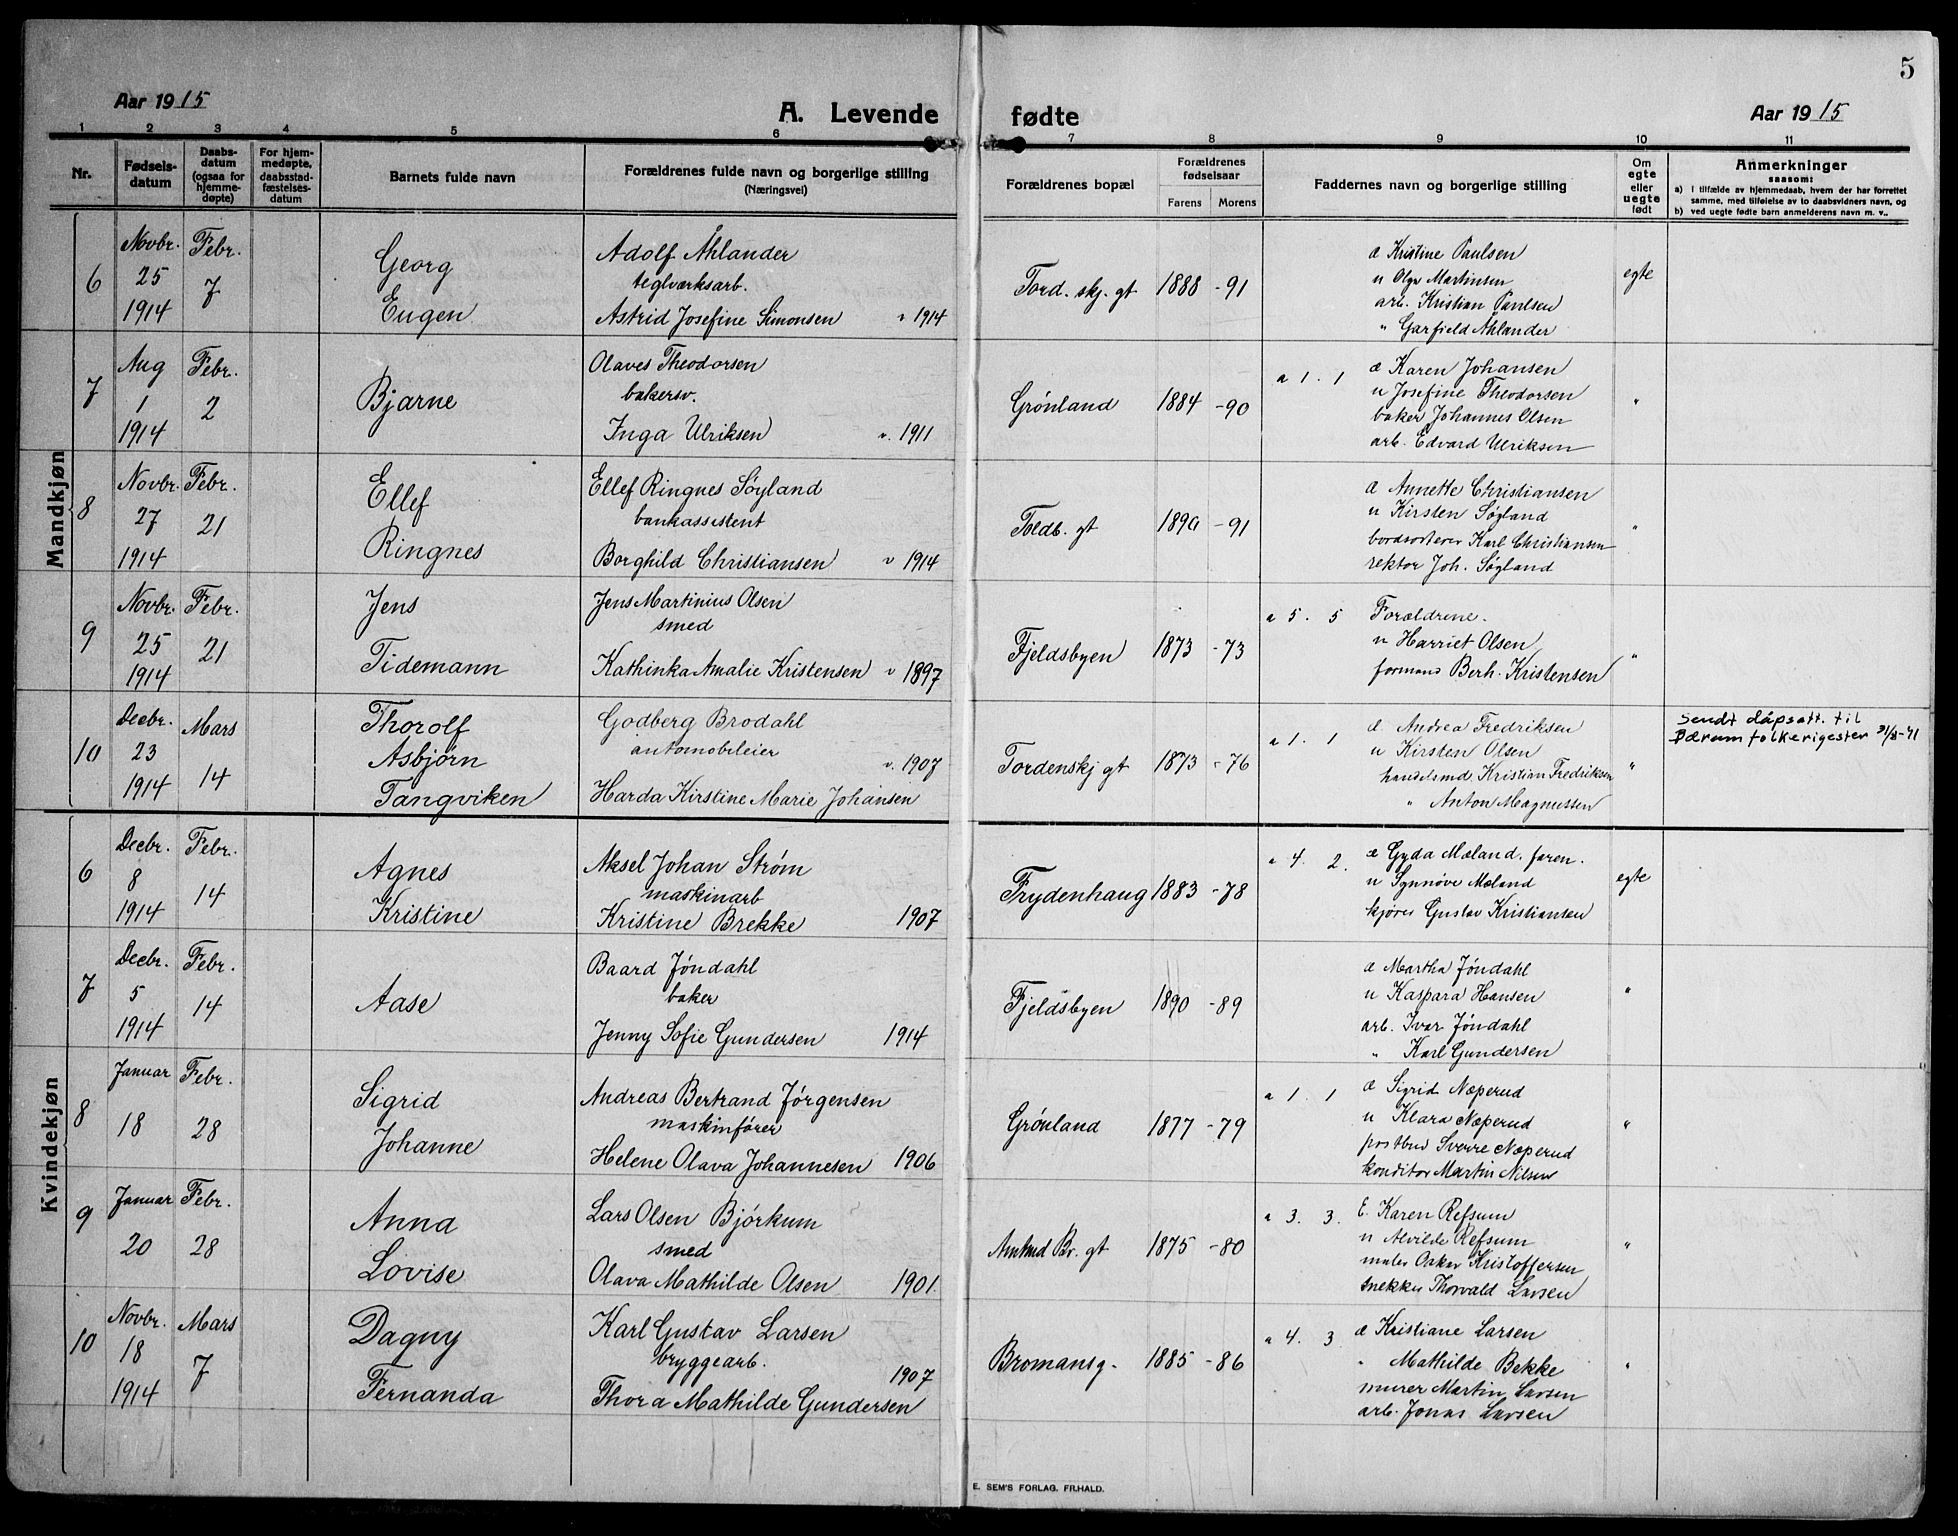 5
Aar 1915
A. Levende
fødte
Aar 1915
1 2 3 4 5 6 7 8 9 10 11
Nr.
Fødsels-
datum
Daabs-
datum
(ogsaa for
hjemme-
døpte)
For hjem-
medøpte,
daabsstad-
fæstelses-
datum
Barnets fulde navn
Forældrenes fulde navn og borgerlige stilling
(Næringsvei)
Forældrenes bopæl
Forældrenes
fødselsaar
Farens Morens
Faddernes navn og borgerlige stilling
Om
egte
eller
uegte
født
Anmerkninger
saasom:
a) i tilfælde av hjemmedaab, hvem der har forrettet
samme, med tilføielse av to daabsvidners navn, og
b) ved uegte fødte barn anmelderens navn m. v..
Mandkjøn
6
Novbr.
25
1914
Febr.
7
Georg
Eugen
Adolf Åhlander
teglværksarb.
Astrid Josefine Simonsen v 1914
Tord. skj. gt
1888 - 91
æ Kristine Paulsen
u Olga Martinsen
arb. Kristian Paulsen
" Garfield Åhlander
egte
7
Aug
1
1914
Febr.
2
Bjarne
Olaves Theodorsen
bakersv.
Inga Ulriksen v. 1911
Grønland
1884 - 90
a 1. 1
æ Karen Johansen
u Josefine Theodorsen
baker Johannes Olsen
arb. Edvard Ulriksen
"
8
Novbr.
27
1914
Febr.
21
Ellef
Ringnes
Ellef Ringnes Søyland
bankassistent
Borghild Christiansen v 1914
Toldb. gt
1890 - 91
æ Annette Christiansen
u Kirsten Søyland
bordsorterer Karl Christiansen
rektor Joh. Søyland
"
9
Novbr.
25
1914
Febr.
21
Jens
Tidemann
Jens Martinius Olsen
smed
Kathinka Amalie Kristensen v 1897
Fjeldsbyen
1873 - 73
a 5. 5
Forældrene.
u Harriet Olsen
formand Berh. Kristensen
"
10
Decbr.
23
1914
Mars
14
Thorolf
Asbjørn
Tangviken
Godberg Brodahl
automobileier
v. 1907
Harda Kirstine Marie Johansen
Tordenskj gt
1873 - 76
a 1. 1
æ Andrea Fredriksen
u Kirsten Olsen
handelsmd. Kristian Fredriksen
" Anton Magnussen
"
Sendt dåpsatt. til
Bærum folkerigester 31/8-41
Kvindekjøn
6
Decbr.
8
1914
Febr.
14
Agnes
Kristine
Aksel Johan Strøm
maskinarb
Kristine Brekke 1907
Frydenhaug
1883 - 78
a 4. 2.
æ Gyda Mæland. faren.
u Synnøve Mæland
kjører Gustav Kristiansen
egte
7
Decbr.
5
1914
Febr.
14
Aase
Baard Jøndahl
baker
Jenny Sofie Gundersen 1914
Fjeldsbyen
1890 - 89
æ Martha Jøndahl
u Kaspara Hansen
arb. Ivar Jøndahl
" Karl Gundersen
"
8
Januar
18
Febr.
28
Sigrid
Johanne
Andreas Bertrand Jørgensen
maskinfører
Helene Olava Johannesen 1906
Grønland
1877 - 79
a 1. 1
æ Sigrid Næperud
u Klara Næperud
postbud Sverre Næperud
konditor Martin Nilsen
"
9
Januar
20
Febr.
28
Anna
Lovise
Lars Olsen Bjørkum
smed
Olava Mathilde Olsen 1901.
Br. gt
1875 - 80
a 3. 3.
E. Karen Refsum
u Alvilde Refsum
maler Oskar Kristoffersen
snekker Thorvald Larsen
"
10
Novbr.
18
1914
Mars
7
Dagny
Fernanda
Karl Gustav Larsen
bryggearb.
1907
Thora Mathilde Gundersen
Bromansg.
1885 - 86
a 4. 3
æ Kristiane Larsen
" Mathilde Bekke
murer Martin Larsen
arb. Jonas Larsen
"
E. SEM'S FORLAG. FR.HALD.